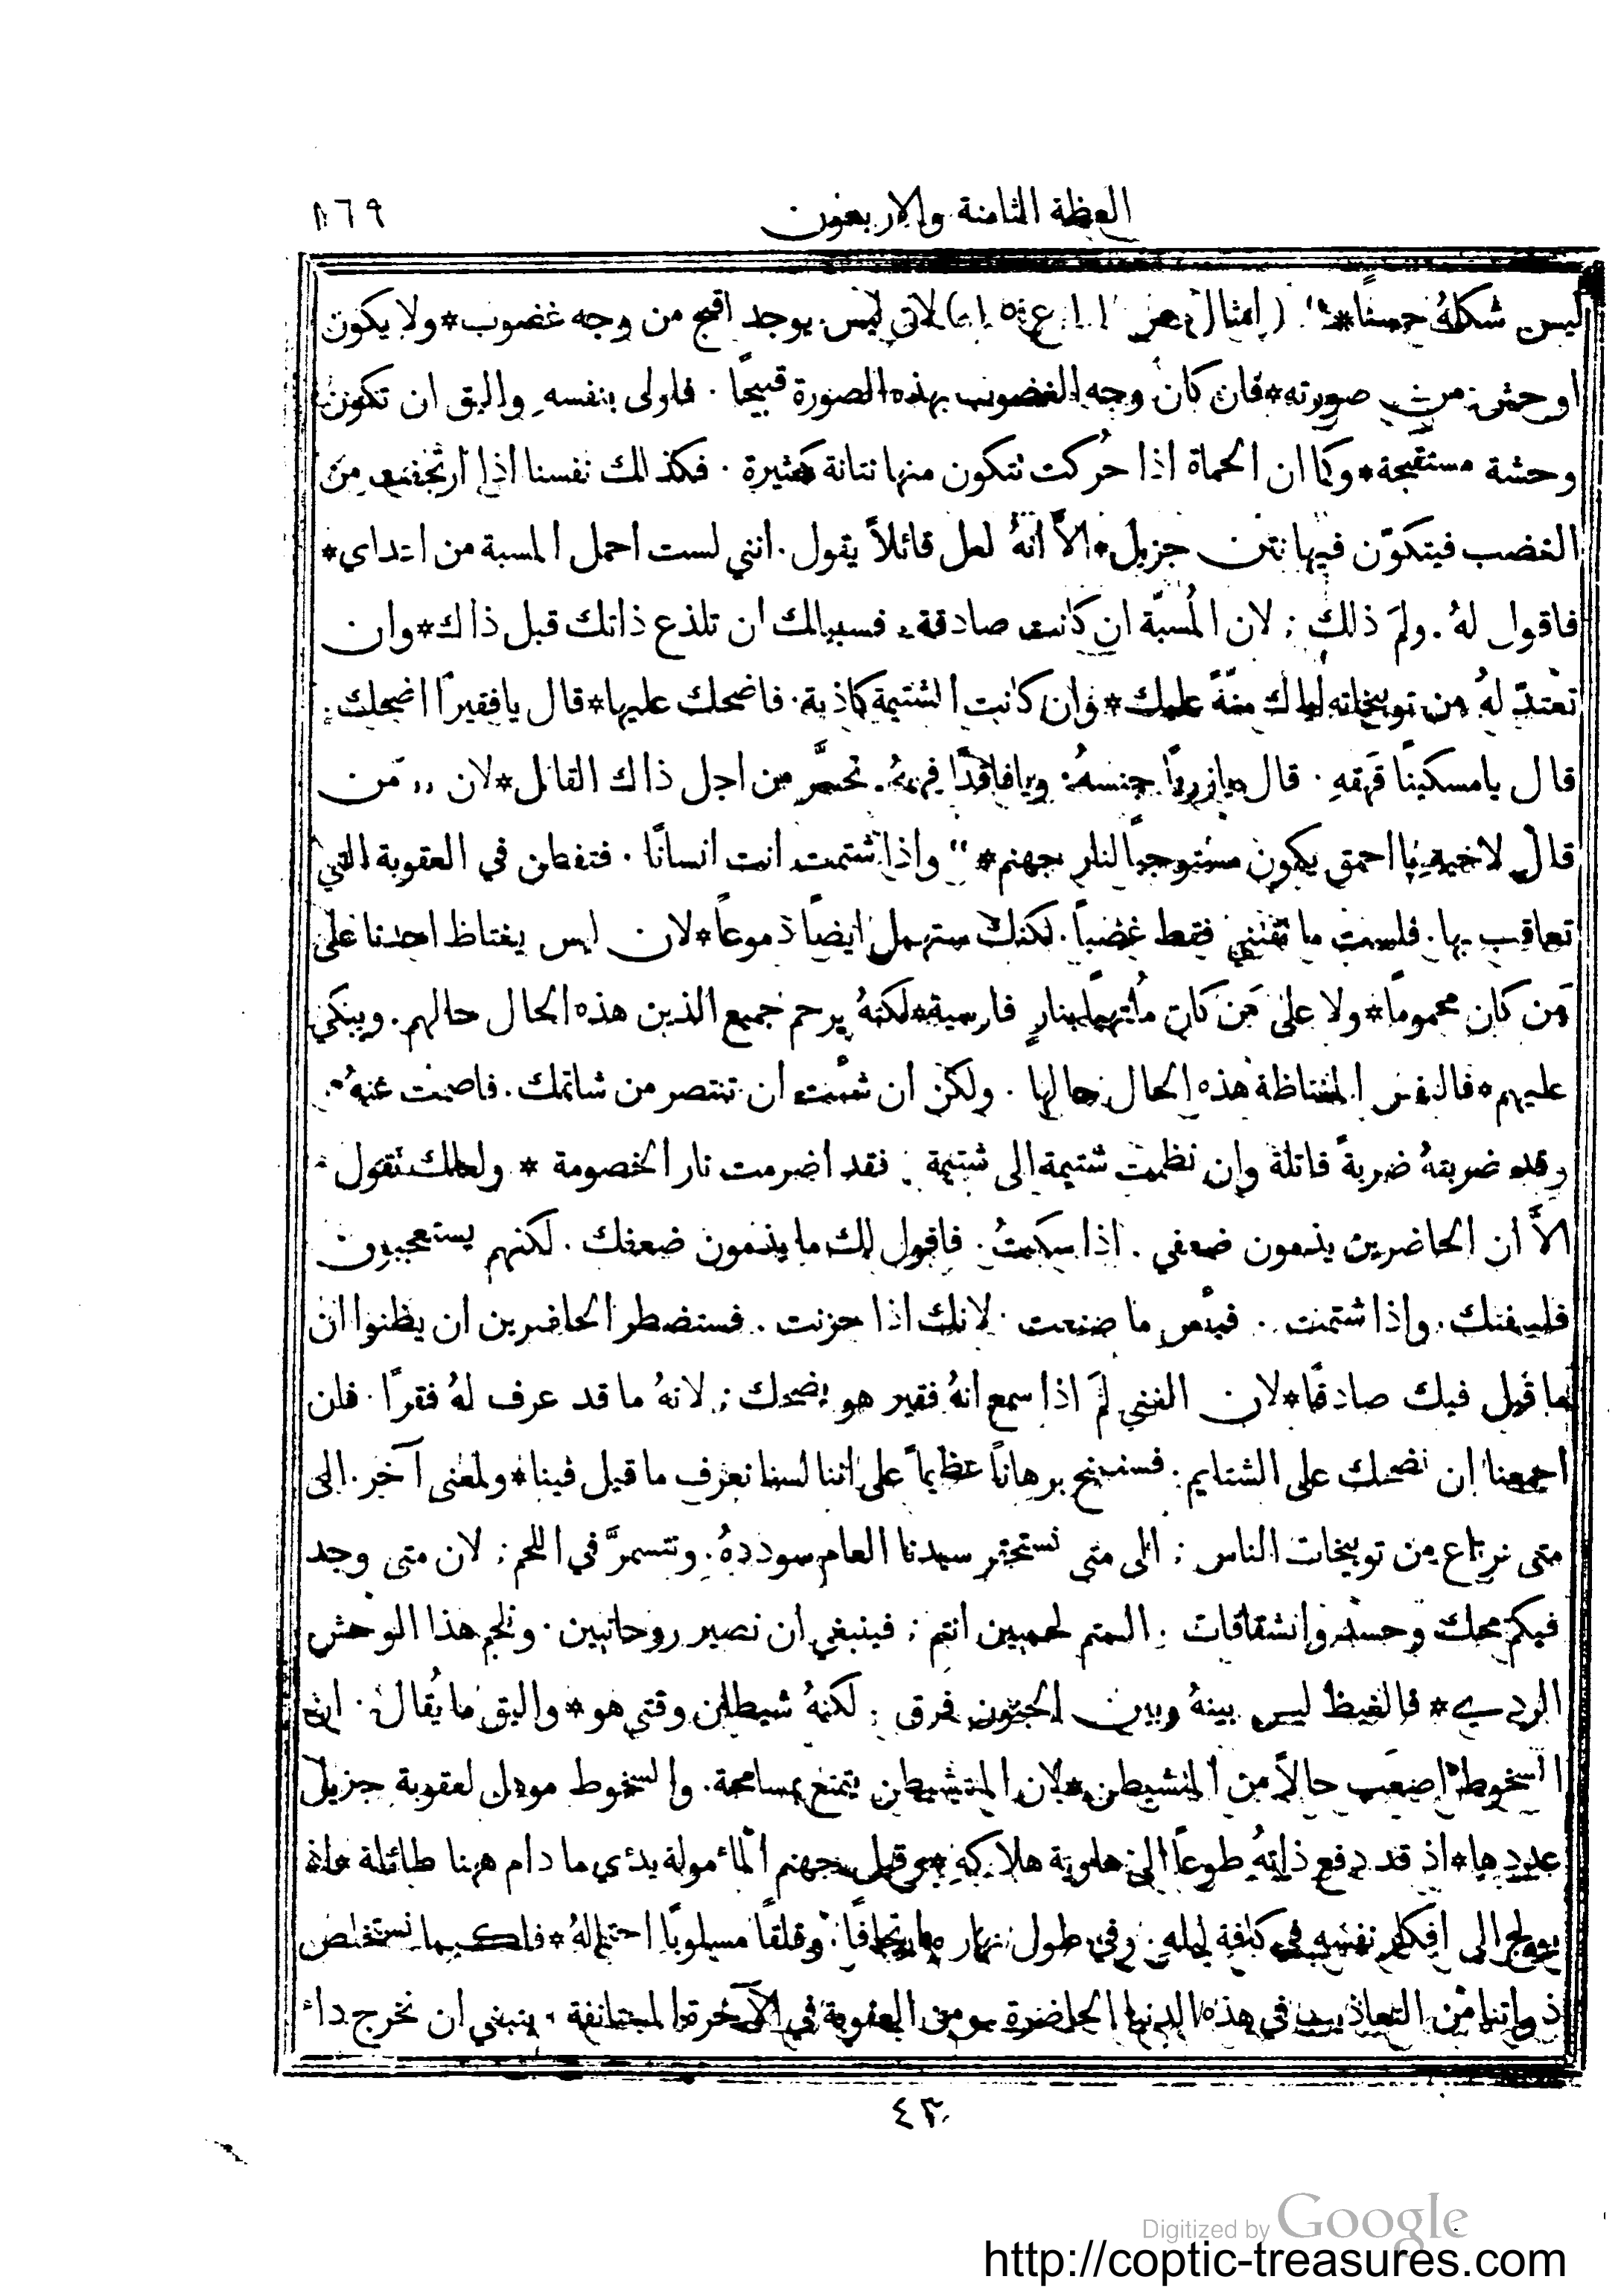 العظة الثامنة والاربعون ١٦٩
ليس شكلهُ حسنًا*" ( امثال ص ١١ ع ٢٥ ) لاني ليس يوجد اقبح من وجه غضوب*ولا يكون
اوحش من صورته*فان كان وجه الغضوب بهذه الصورة قبيحًا . فاولى بنفسهِ واليق ان تكون
وحشة مستقبحة*وكما ان الحماة اذا حُركت تتكون منها نتانة كثيرة . فكذلك نفسنا اذا ارتجفت من
الغضب فيتكوّن فيها نتن جزيل*الاَّ انهُ لعل قائلاً يقول . انني لست احمل المسبة من انداى*
فاقول لهُ . ولمَ ذلك ; لان المُسبّة ان كانت صادقة . فسبيلك ان تلذع ذاتك قبل ذاك*وان
تعتدّ لهُ من توبيخاته اياك منّةً عليك*وان كانت الشتيمة كاذبة . فاضحك عليها*قال يافقيرًا اضحك .
قال يامسكينًا قهقهِ . قال يازريًا جنسهُ . ويافاقدًا فهمهُ . تحسَّر من اجل ذاك القائل*لان ,, مَن
قال لاخيه يااحمق يكون مستوجبًا لنار جهنم*" واذا شتمت انت انسانًا . فتفطن في العقوبة التي
تعاقب بها . فلست ما تقتني فقط غضبًا . لكنك ستهمل ايضًا دموعًا*لان ليس يغتاظ احدنا على
مَن كان محمومًا*ولا على مَن كان مُلتهبًا بنارٍ فارسية*لكنهُ يرحم جميع الذين هذه الحال حالهم . ويبكي
عليهم*فالنفس المغتاظة هذه الحال حالها . ولكن ان شئت ان تنتصر من شاتمك . فاصمت عنهُ .
وقد ضربتهُ ضربةً قاتلة وان نظمت شتيمة الى شتيمة . فقد اضرمت نار الخصومة * ولعلك تقول
الاَّ ان الحاضرين يذمون ضعفي . اذا سكتُ . فاقول لك ما يذمون ضعفك . لكنهم يستعجبون
فلسفتك . واذا شتمت . فبئس ما صنعت . لانك اذا حزنت . فستضطر الحاضرين ان يظنوا ان
ما قيل فيك صادقًا*لان الغني لمَ اذا سمع انهُ فقير هو يضحك ; لانهُ ما قد عرف لهُ فقرًا . فلن
اجمعنا ان نضحك على الشتايم . فسننتج برهانًا عظيمًا على اننا لسنا نعرف ما قيل فينا*ولمعنى آخر . الى
متى نرتاع من توبيخات الناس ; الى متى نستحقر سيدنا العام سودده . ونتسمرَّ في اللحم ; لان متى وجد
فيكم محك وحسد وانشقاقات . الستم لحميين انتم ; فينبغي ان نصير روحانيين . ونلجم هذا الوحش
الردي* فالغيظ ليس بينهُ وبين الجنون فرق . لكنهُ شيطان وقتي هو*واليق ما يُقال . ان
السخوط اصعب حالاً من المتشيطن*لان المتشيطن يتمتع بمسامحة . والسخوط موهل لعقوبة جزيل
عددها*اذ قد دفع ذاتهُ طوعًا الى هاوية هلاكهِ*وقبل جهنم المأمولة يدؤي ما دام هنا طائلة
يولج الى افكار نفسه في كافة ليله . وفي طول نهاره ارتجافًا . وقلقًا مسلوبًا احتماله*فلكيما نستخلص
ذواتنا من التعاذيب في هذه الدنيا الحاضرة ومن العقوبة في الآخرة المستانفة . ينبغي ان نخرج داء
٤٣
Digitized by Google
http://coptic-treasures.com